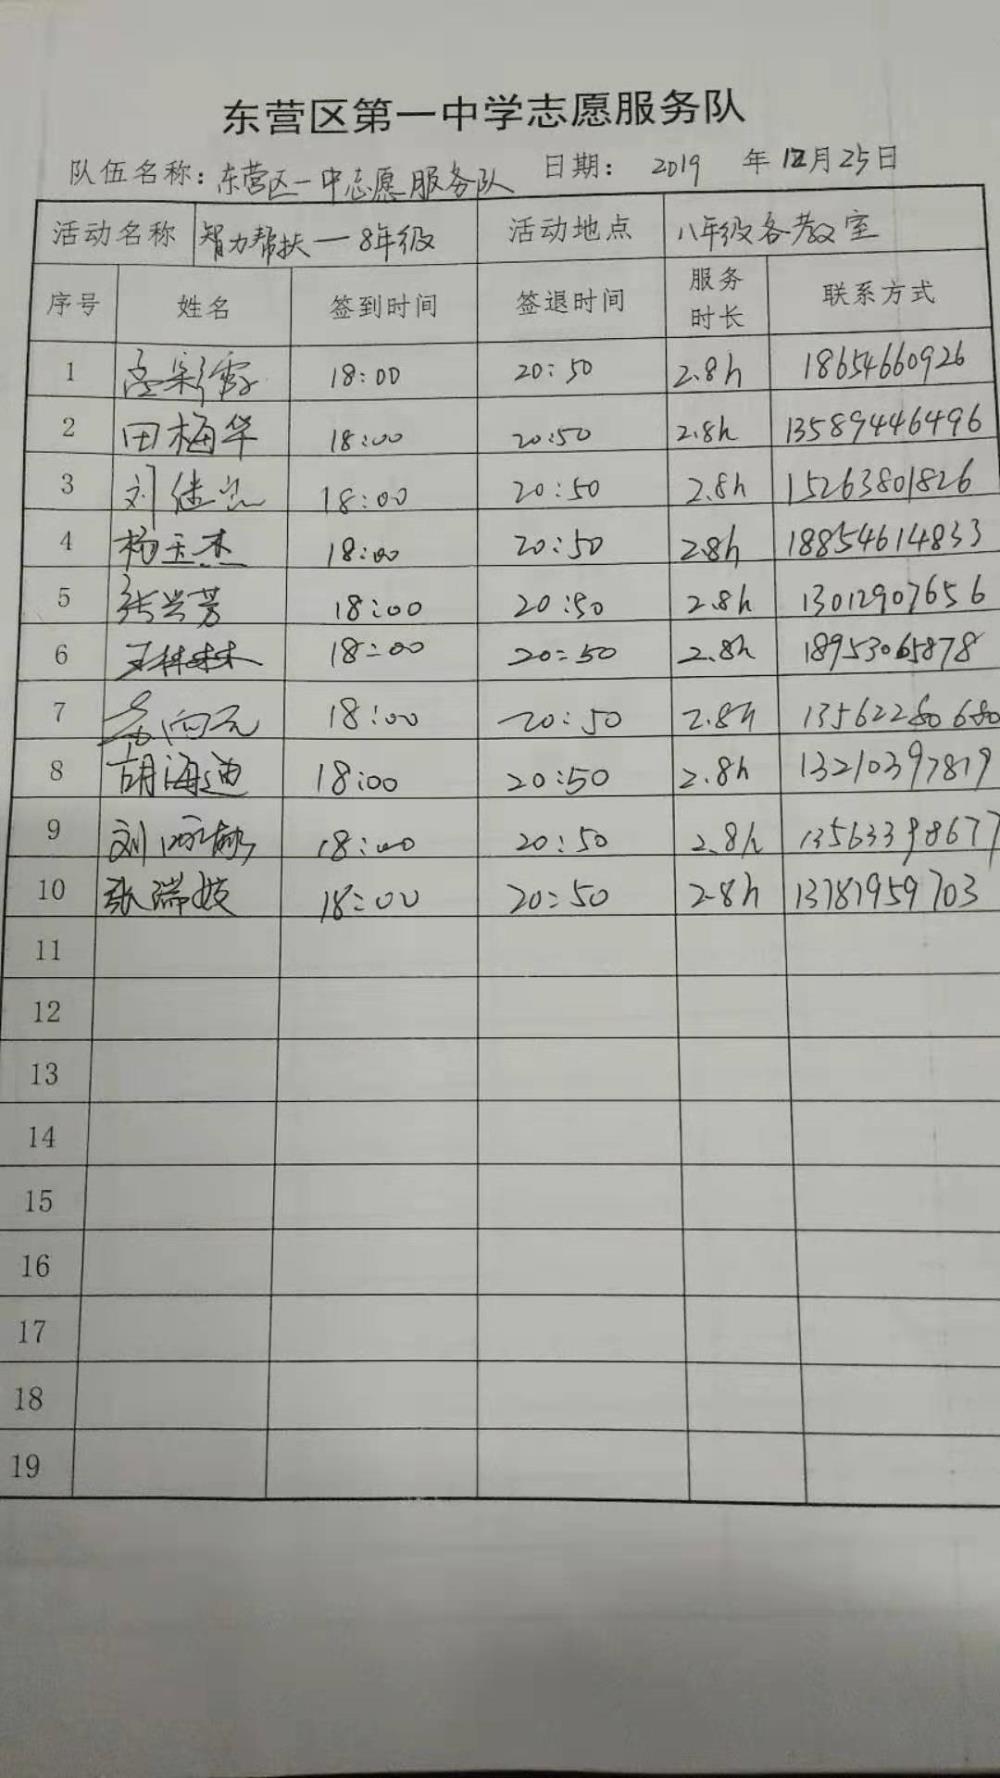 东营区第一中学志愿服务队
队伍名称：东营区一中志愿服务队 日期： 2019 年 12月25日
活动名称 智力帮扶—8年级 活动地点 八年级各教室
序号 姓名 签到时间 签退时间 服务时长 联系方式
1 18:00 20:50 2.8h 18654660926
2 田梅华 18:00 20:50 2.8h 13589446496
3 刘 18:00 20:50 2.8h 15263801826
4 杨玉杰 18:00 20:50 2.8h 18854614833
5 张兰芳 18:00 20:50 2.8h 13012907656
6 王林林 18:00 20:50 2.8h 18953065878
7 18:00 20:50 2.8h 13562280680
8 胡海迪 18:00 20:50 2.8h 13210397819
9 刘 18:00 20:50 2.8h 13563398677
10 张瑞 18:00 20:50 2.8h 13781959703
11
12
13
14
15
16
17
18
19